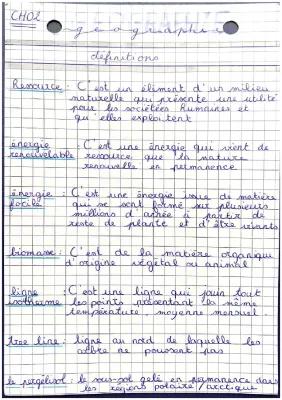 CH02
géographie
définitions
Ressource : C'est un élément d'un milieu
naturelle qui présente une utilité
pour les sociétés humaines et
qu'elles exploitent
énergie : C'est une énergie qui vient de
renouvelable ressource que la nature
renouvelle en permanence
énergie : C'est une énergie issue de matière
focile qui se sont formé sur plusieurs
millions d'année à partir de
reste de plante et d'être vivants
biomasse : C'est de la matière organique
d'origine végétal ou animal
ligne : C'est une ligne qui join tout
isotherme les points présentant la même
température moyenne mensuel
tree line : ligne au nord de laquelle les
arbre ne poussent pas
le pergélisol : le sous-sol gelé en permanence dans
les régions polaire / arctique